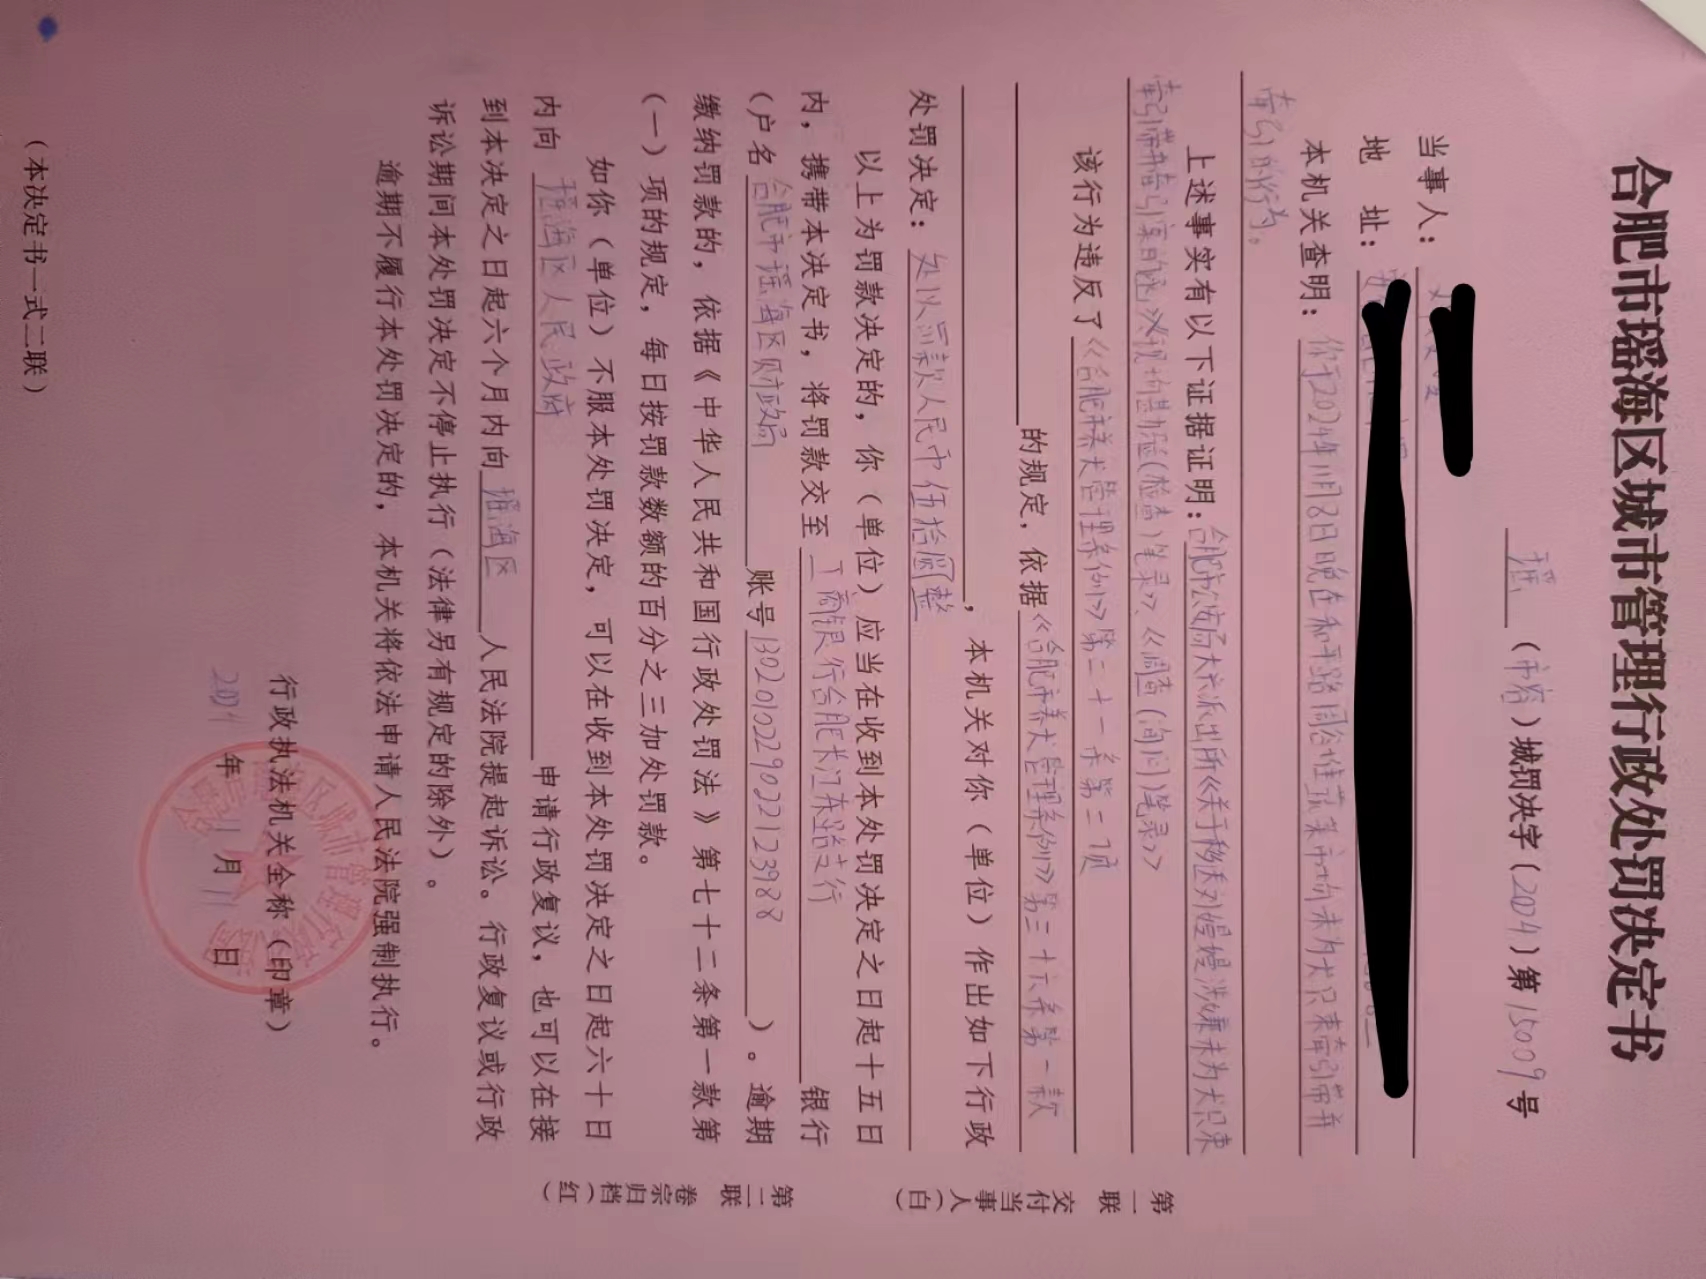 合肥市瑶海区城市管理行政处罚决定书
瑶（市容）城罚决字（2024）第15009号
当事人：
地 址：
本机关查明：你于2024年11月8日晚在和平路周谷堆蔬菜市场未为犬只束牵引带并
牵引的行为。
上述事实有以下证据证明：合肥市公安局大兴派出所《关于移送刘嫚嫚涉嫌未为犬只束
牵引带并牵引案的函》《现场勘验（检查）笔录》、《调查（询问）笔录》
该行为违反了《合肥市养犬管理条例》第二十一条第二项
的规定，依据《合肥市养犬管理条例》第三十六条第一款
，本机关对你（单位）作出如下行政
处罚决定：处以罚款人民币伍拾圆整
以上为罚款决定的，你（单位）应当在收到本处罚决定之日起十五日
内，携带本决定书，将罚款交至工商银行合肥长江东路支行银行
（户名合肥市瑶海区财政局账号1302010229022123988）。逾期
缴纳罚款的，依据《中华人民共和国行政处罚法》第七十二条第一款第
（一）项的规定，每日按罚款数额的百分之三加处罚款。
如你（单位）不服本处罚决定，可以在收到本处罚决定之日起六十日
内向瑶海区人民政府申请行政复议，也可以在接
到本决定之日起六个月内向瑶海区人民法院提起诉讼。行政复议或行政
诉讼期间本处罚决定不停止执行（法律另有规定的除外）。
逾期不履行本处罚决定的，本机关将依法申请人民法院强制执行。
行政执法机关全称（印章）
2024年11月11日
（本决定书一式二联）
第一联 交付当事人（白）
第二联 卷宗归档（红）